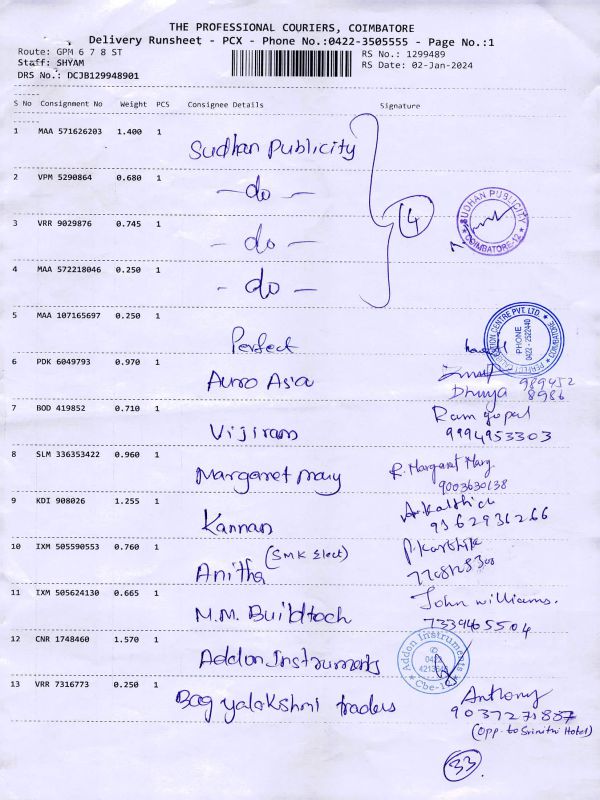 THE PROFESSIONAL COURIERS, COIMBATORE
Delivery Runsheet - PCX - Phone No.:0422-3505555 - Page No.:1
Route: GPM 6 7 8 ST
RS No.: 1299489
Staff: SHYAM
RS Date: 02-Jan-2024
DRS No.: DCJB129948901
S No Consignment No Weight PCS Consignee Details Signature
1 MAA 571626203 1.400 1
Sudhan Publicity
2 VPM 5290864 0.680 1
- do -
3 VRR 9029876 0.745 1
- do -
4 MAA 572218046 0.250 1
- do -
4
SUDHAN PUBLICITY
COIMBATORE-12
5 MAA 107165697 0.250 1
Perfect
PHONE
0422 - 2522440
COIMBATORE
6 PDK 6049793 0.970 1
Auro Asia
Dhivya 989452
8986
7 BOD 419852 0.710 1
Vijirams
Ram gopal
9994953303
8 SLM 336353422 0.960 1
Margaret mary
R. Margaret Mary.
9003630138
9 KDI 908026 1.255 1
Kannan
9562931266
10 IXM 505590553 0.760 1
Anitha (SMK Elect)
P. Karthik
7708125308
11 IXM 505624130 0.665 1
M.M. Buildtech
John williams.
7339465504
12 CNR 1748460 1.570 1
Addon Instruments
Addon Instruments
0422
Cbe-12
13 VRR 7316773 0.250 1
Bagyalakshmi traders
Anthony
9037271887
(Opp. to Srinithi Hotel)
33